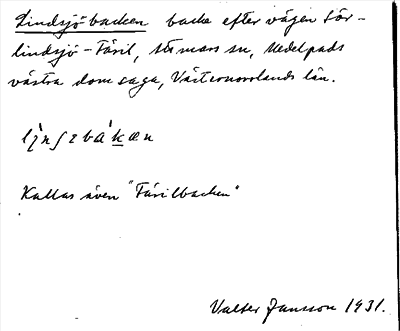 Lindsjö-backen backe efter vägen Sör-
lindsjö - Färil, Stormars sn, Medelpads
västra domsaga, Västernorrlands län.
Kallas även "Färilbacken"
Valter Jansson 1931.